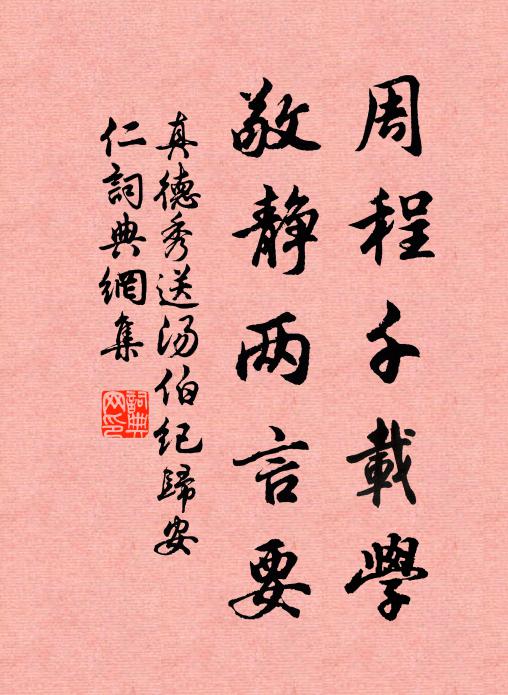 周程千載學
敬静两言要
真德秀送汤伯纪歸安
仁詞典網集
詞典网印